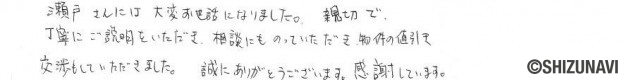 瀬戸さんには大変お世話になりました。親切で、
丁寧にご説明をいただき、相談にものっていただき物件の値引き
交渉もしていただきました。誠にありがとうございます。感謝しています。
©SHIZUNAVI